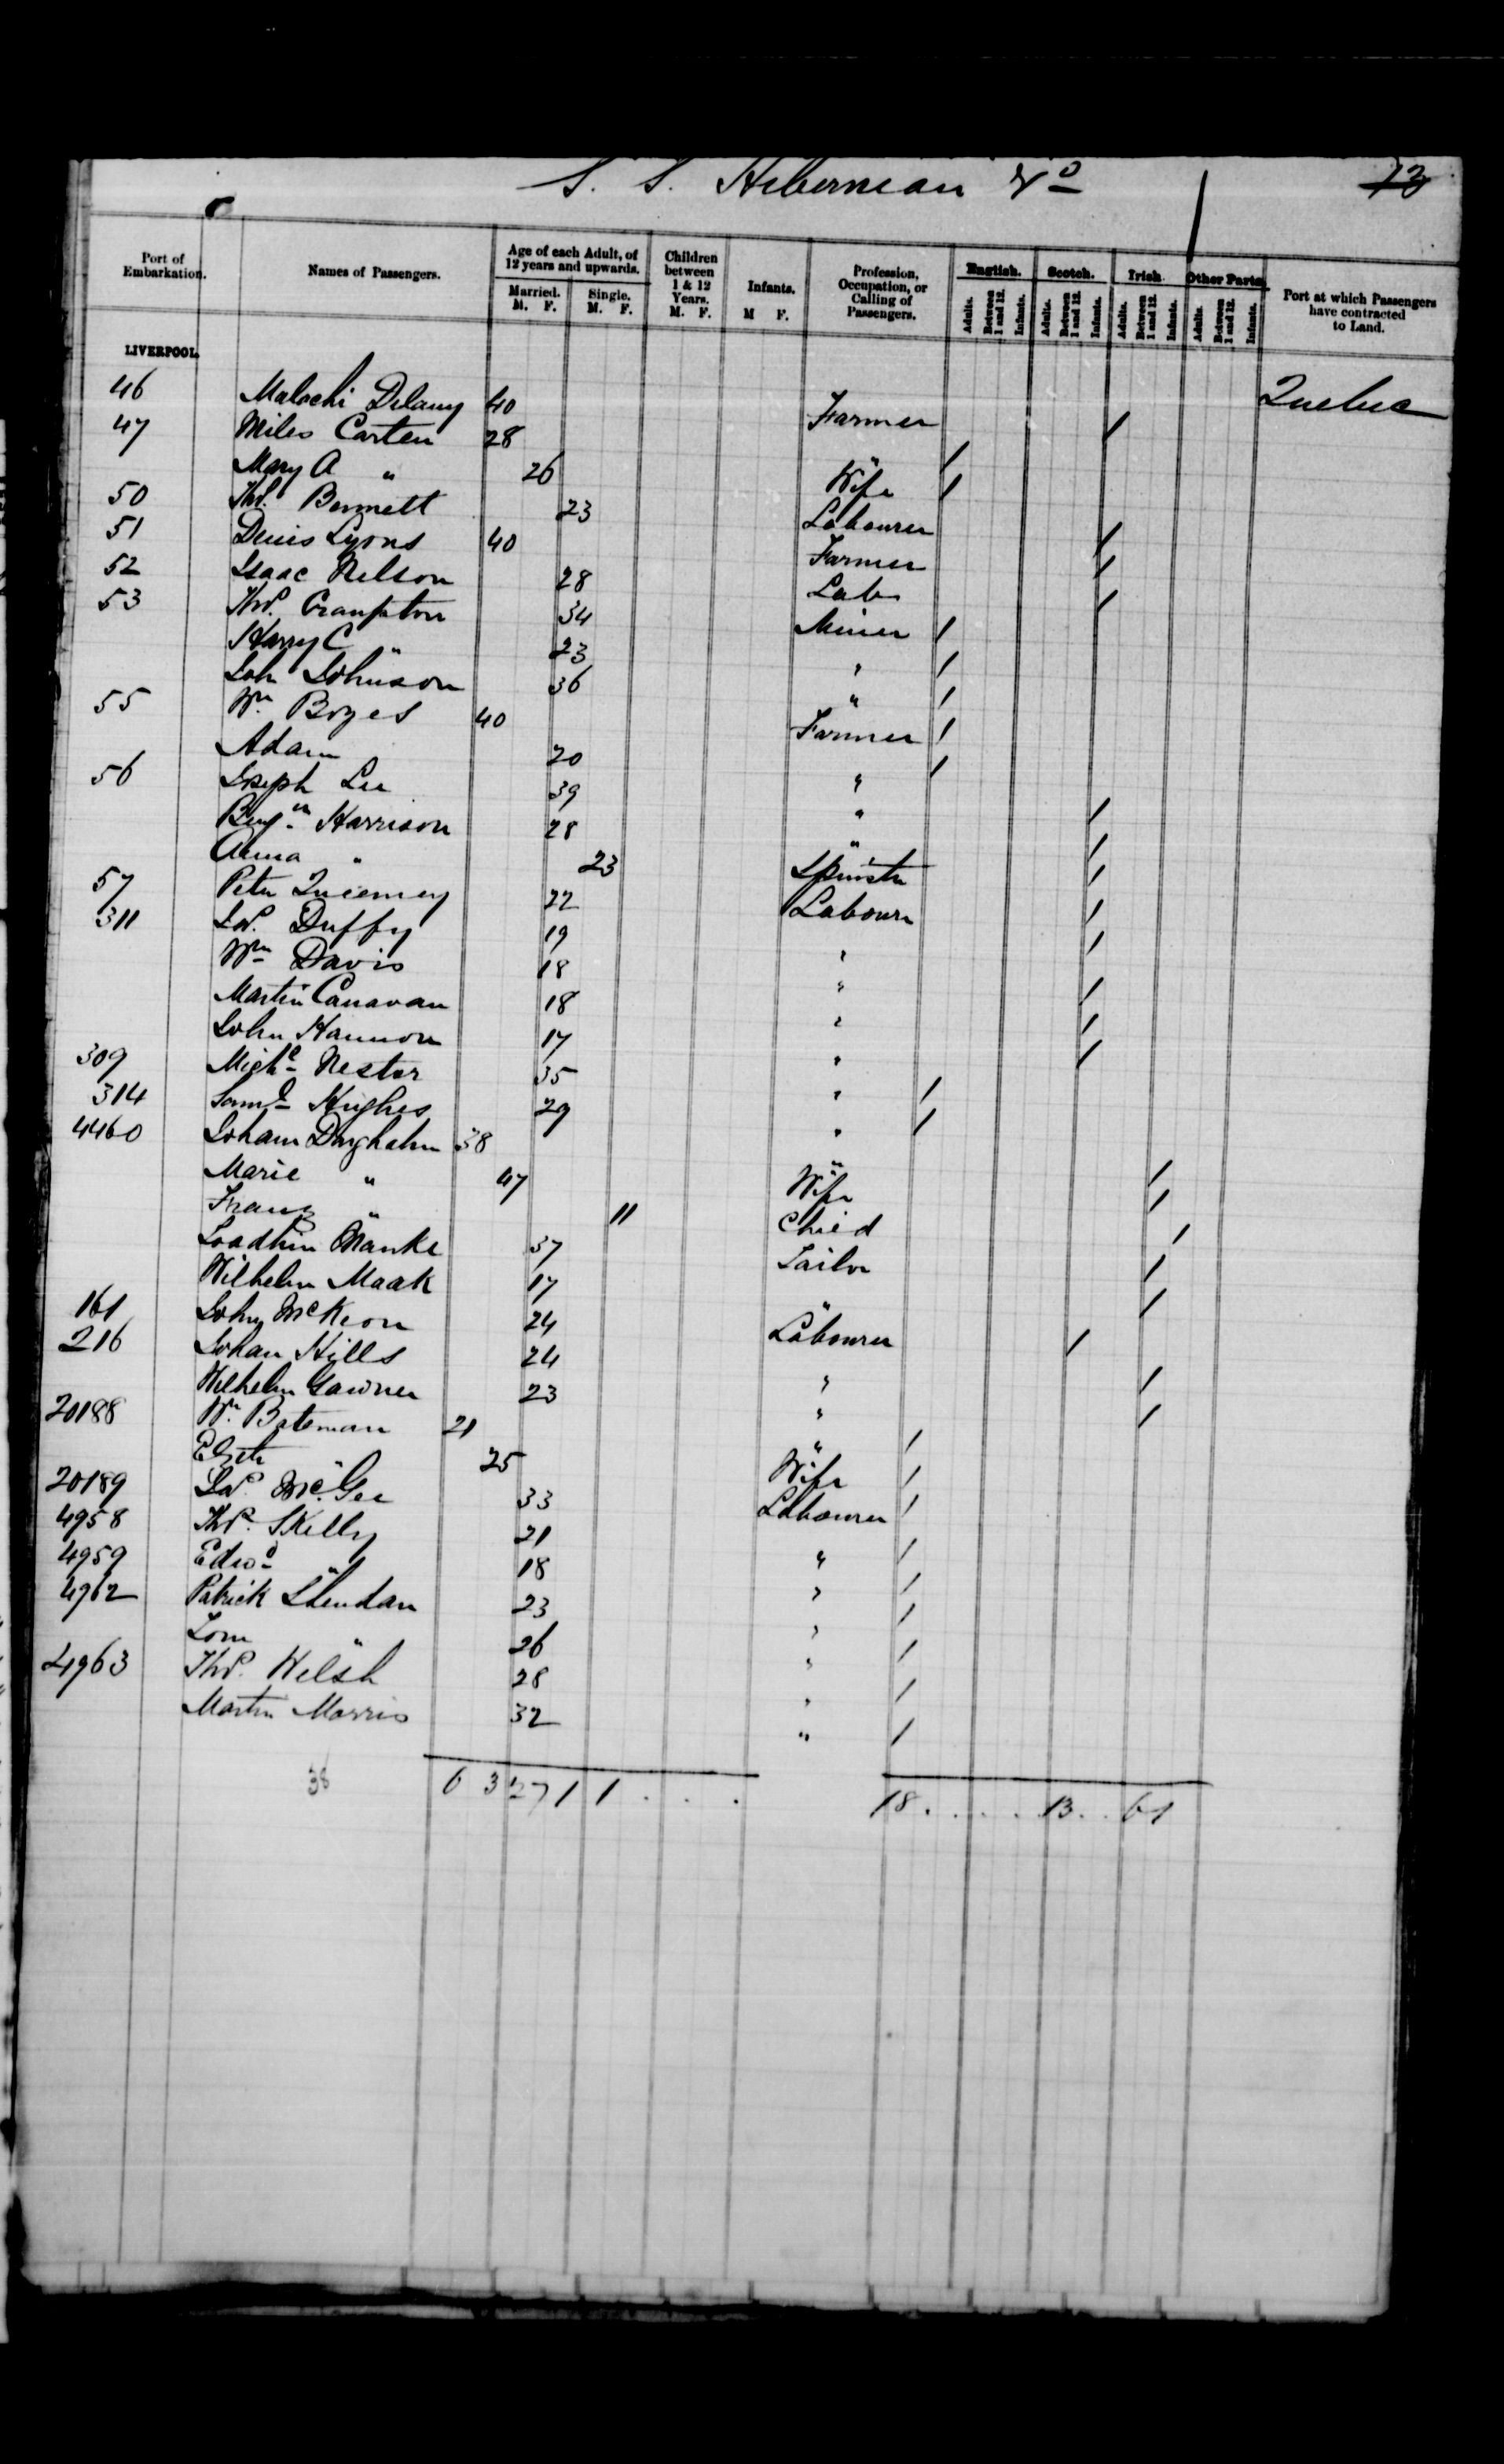 S. S. Hibernian
73
Port of Embarkation.
Names of Passengers.
Age of each Adult, of 12 years and upwards.
Married. M. F.
Single. M. F.
Children between 1 & 12 Years. M. F.
Infants. M F.
Profession, Occupation, or Calling of Passengers.
English. Adults. Between 1 and 12. Infants.
Scotch. Adults. Between 1 and 12. Infants.
Irish Adults. Between 1 and 12. Infants.
Other Parts. Adults. Between 1 and 12. Infants.
Port at which Passengers have contracted to Land.
LIVERPOOL.
46 Malachi Delany 40 Farmer / Quebec
47 Miles Carten 28 " /
Mary A " 26 Wife /
50 Thos. Bennett 23 Labourer /
51 Denis Lyons 40 Farmer /
52 Isaac Nelson 28 Lab /
53 Thos. Crampton 34 Miner /
Harry C " 23 " /
Joh Johnson 36 " /
55 Wm Boyes 40 Farmer /
Adam 20 " /
56 Joseph Lee 39 " /
Benjn Harrison 28 " /
Anna " 23 Spinstr /
57 Peter 22 Labourr /
311 Jas. Duffy 19 " /
Wm Davis 18 " /
Martin Canavan 18 " /
John Hannon 17 " /
309 Michl Nestor 35 " /
314 Saml Hughes 29 " /
4460 Joham 38 " /
Marie " 47 Wife /
Franz " 11 Child /
37 Tailor /
Wilhelm Maak 17 " /
161 John McKeon 24 Labourer /
216 Johan Hills 24 " /
Wilhelm 23 " /
20188 Wm Bateman 21 " /
Elizth " 25 Wife /
20189 Jas. McGee 33 Labourer /
4958 Thos. Skelly 21 " /
4959 Edwd " 18 " /
4962 Patrick Sheridan 23 " /
Tom " 26 " /
4963 Thos. Welsh 28 " /
Martin Morris 32 " /
38 6 3 27 1 1 . . . 18 . . . . . 13 . . 6 1